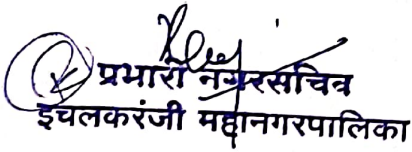 प्रभारी नगरसचिव
इचलकरंजी महानगरपालिका